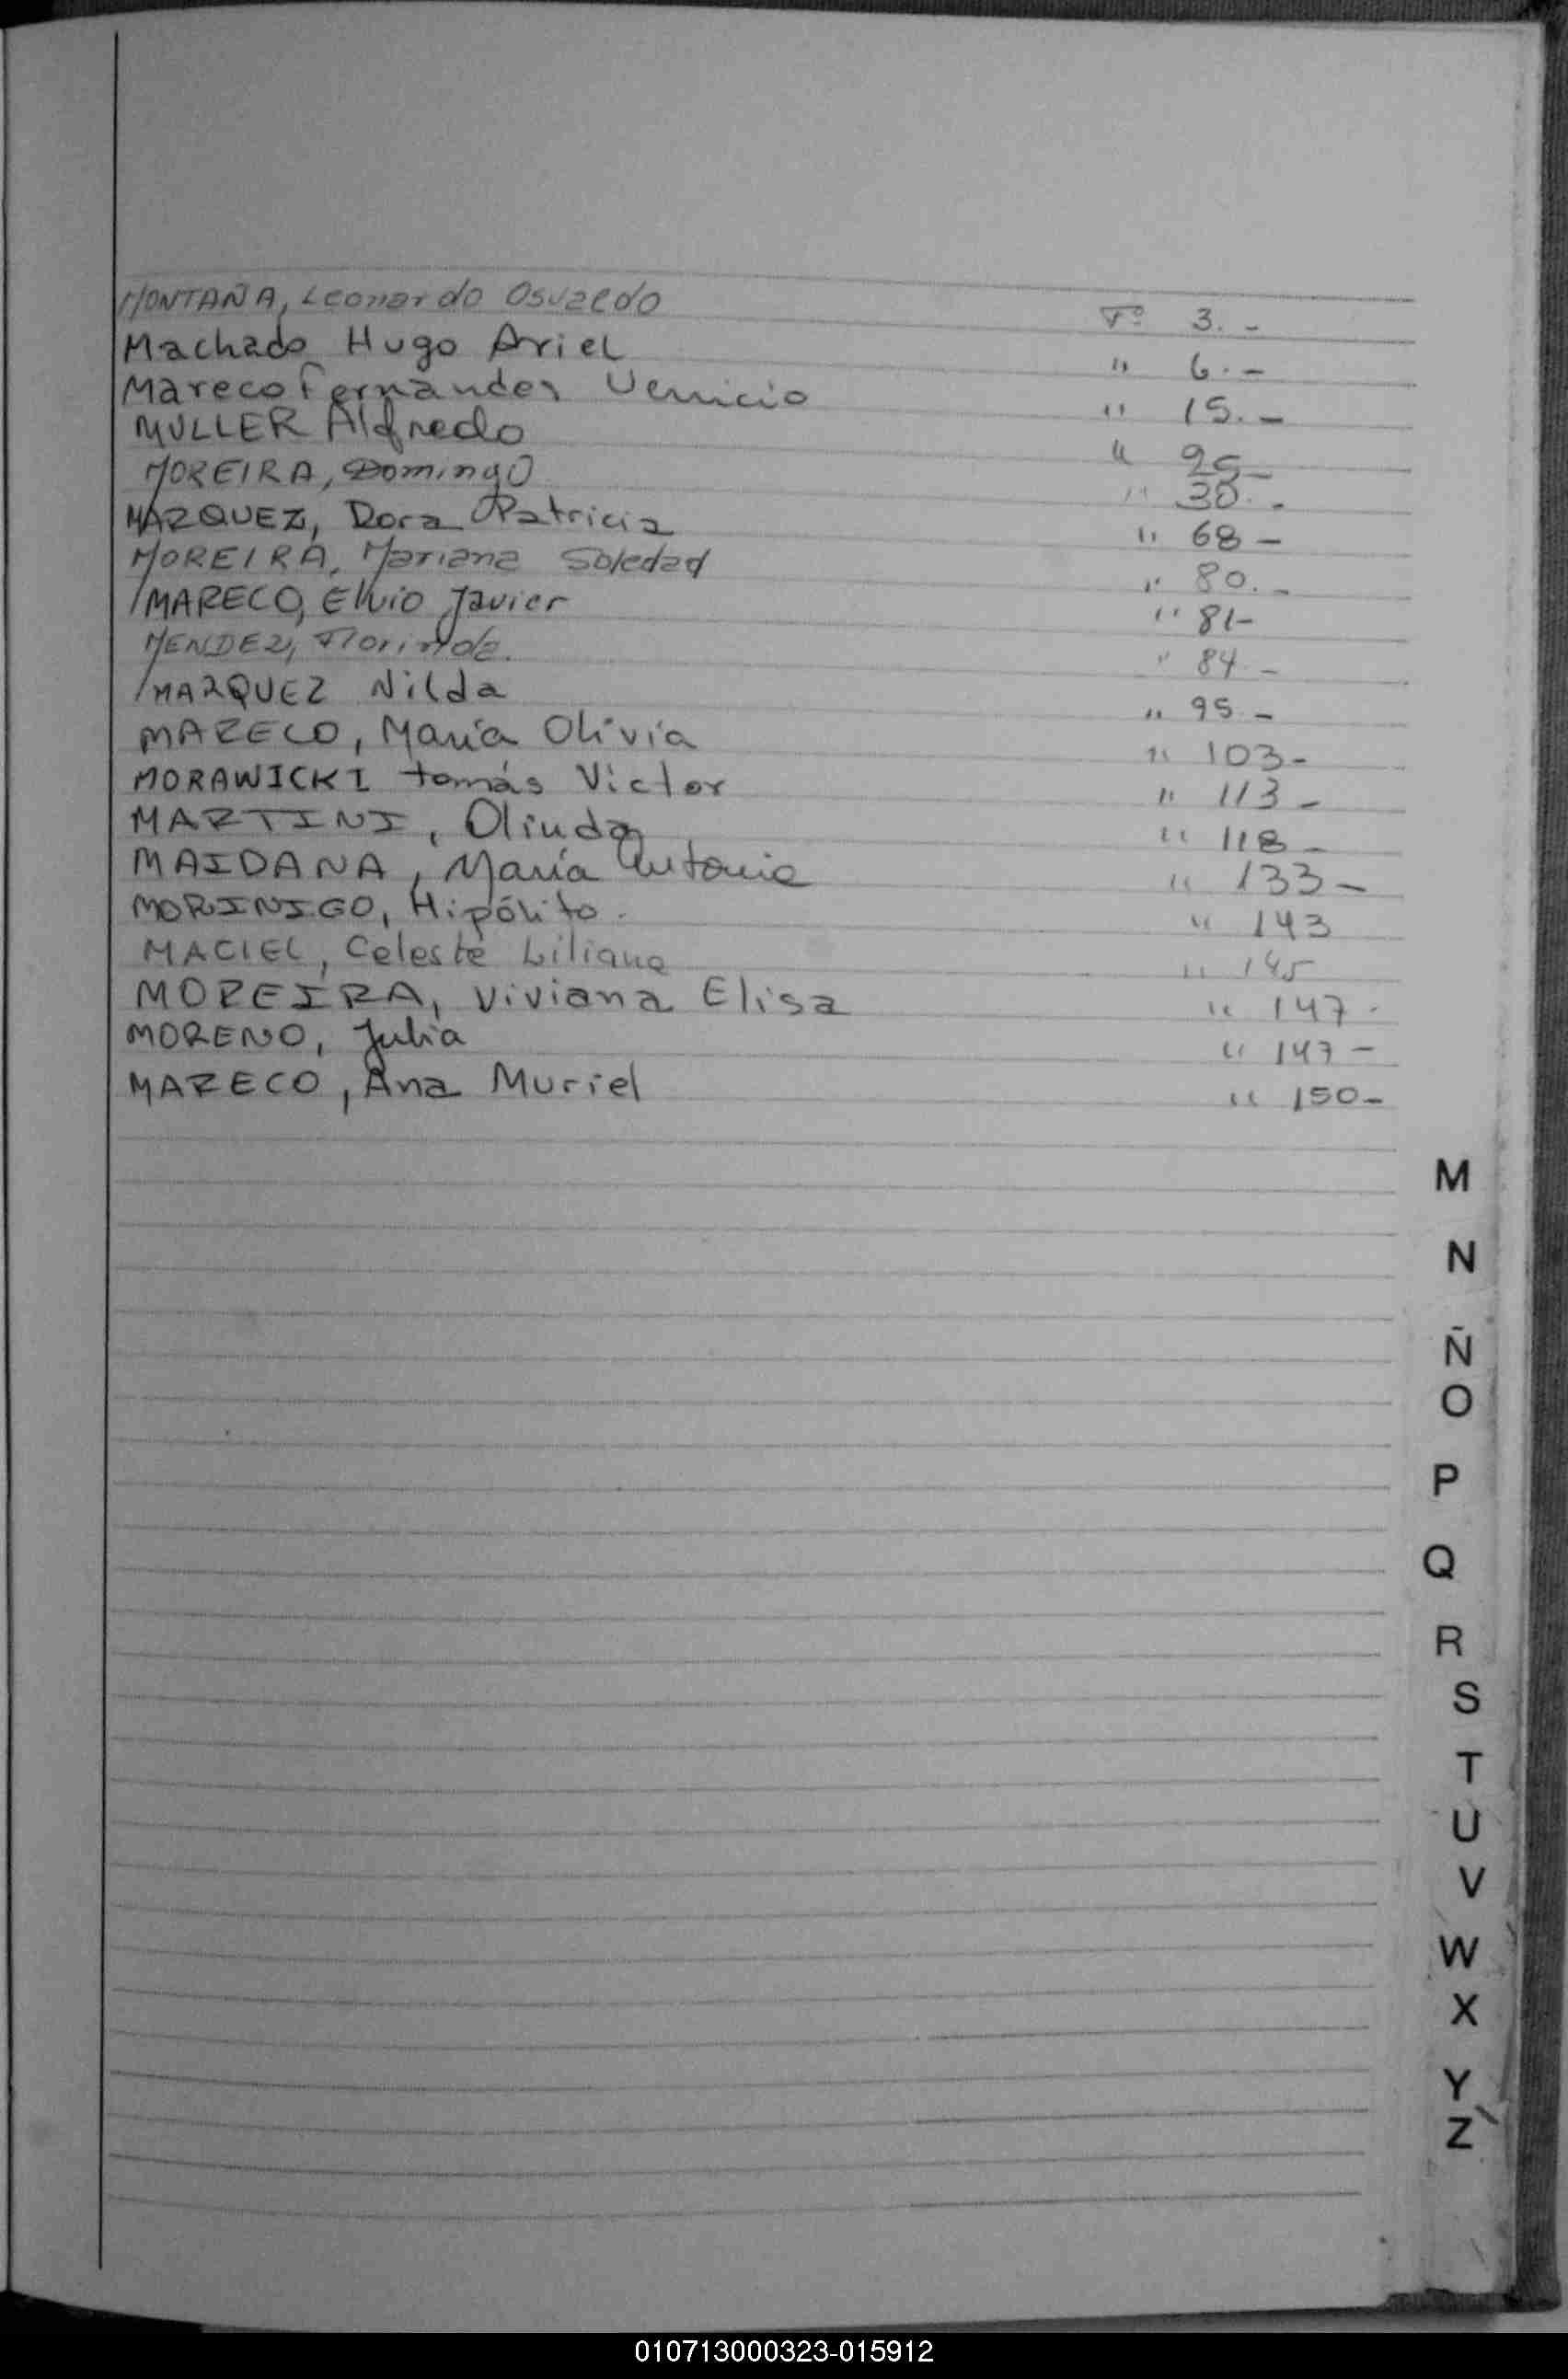 MONTAÑA, Leonardo Osvaldo Fº 3.-
Machado Hugo Ariel " 6.-
Mareco Fernandes Vernicio " 15.-
MULLER Alfredo " 25-
MOREIRA, Domingo " 30.-
MARQUEZ, Dora Patricia " 68-
MOREIRA, Mariana Soledad " 80.-
MARECO, Elvio Javier " 81-
MENDEZ, Florinda. " 84-
MARQUEZ Nilda " 95-
MARECO, María Olivia " 103-
MORAWICKI tomás Victor " 113-
MARTINI, Olinda " 118-
MAIDANA, María Antonia " 133-
MORINIGO, Hipólito. " 143
MACIEL, Celeste Liliana " 145
MOREIRA, Viviana Elisa " 147-
MORENO, Julia " 147-
MARECO, Ana Muriel " 150-
M
N
Ñ
O
P
Q
R
S
T
U
V
W
X
Y
Z
010713000323-015912